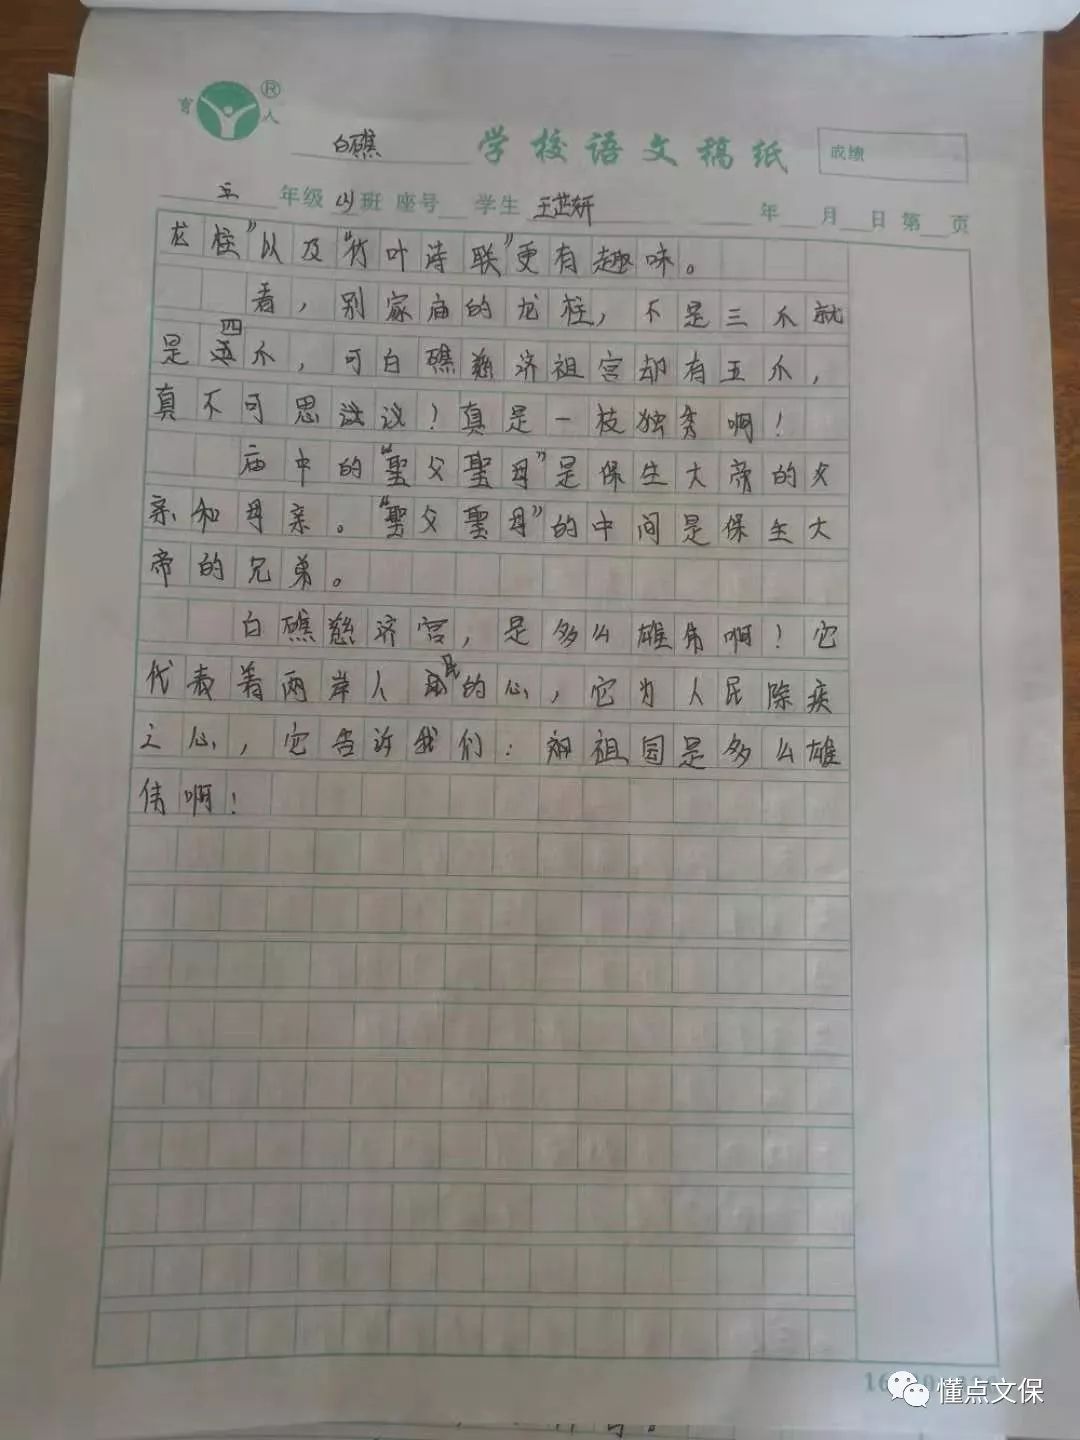 育人®
白礁 学校语文稿纸 成绩
五年级(4)班 座号 学生 王芷妍 年 月 日 第 页
龙柱”以及“竹叶诗联”更有趣味。
看，别家庙的龙柱，不是三爪就
是四爪，可白礁慈济祖宫却有五爪，
真不可思议！真是一枝独秀啊！
庙中的“聖父聖母”是保生大帝的父
亲和母亲。“聖父聖母”的中间是保生大
帝的兄弟。
白礁慈济宫，是多么雄伟啊！它
代表着两岸人民的心，它为人民除疾
之心，它告诉我们：祖国是多么雄
伟啊！
懂点文保